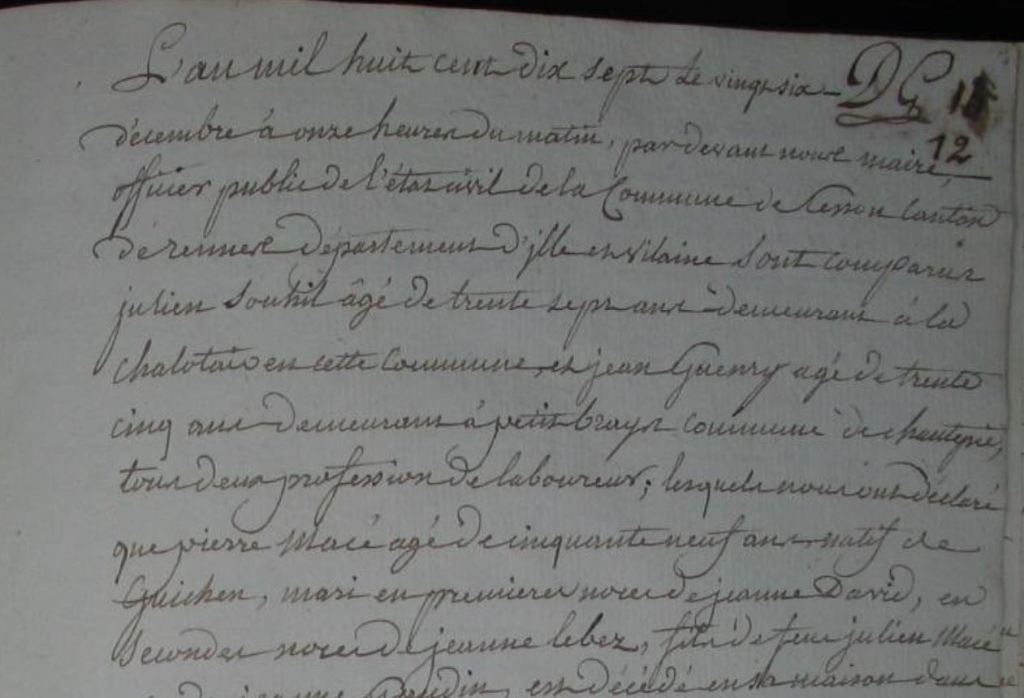 L'an mil huit cent dix sept le vingt six DG 18
12
décembre à onze heures du matin, par devant nous maire,
officier public de l'état civil de la Commune de Cesson Canton
de rennes département d'ille et vilaine sont comparus
julien Souhil âgé de trente sept ans demeurant à la
chalotais en cette commune, et jean Guenry agé de trente
cinq ans demeurant à petit brays commune de chantepie,
tous deux profession de laboureur; lesquels nous ont déclaré
que pierre Macé agé de cinquante neuf ans natif de
Guichen, mari en premieres noces de jeanne David, en
secondes noces de jeanne lebez, fils de feu julien Macé
jeanne est décédé en sa maison dans